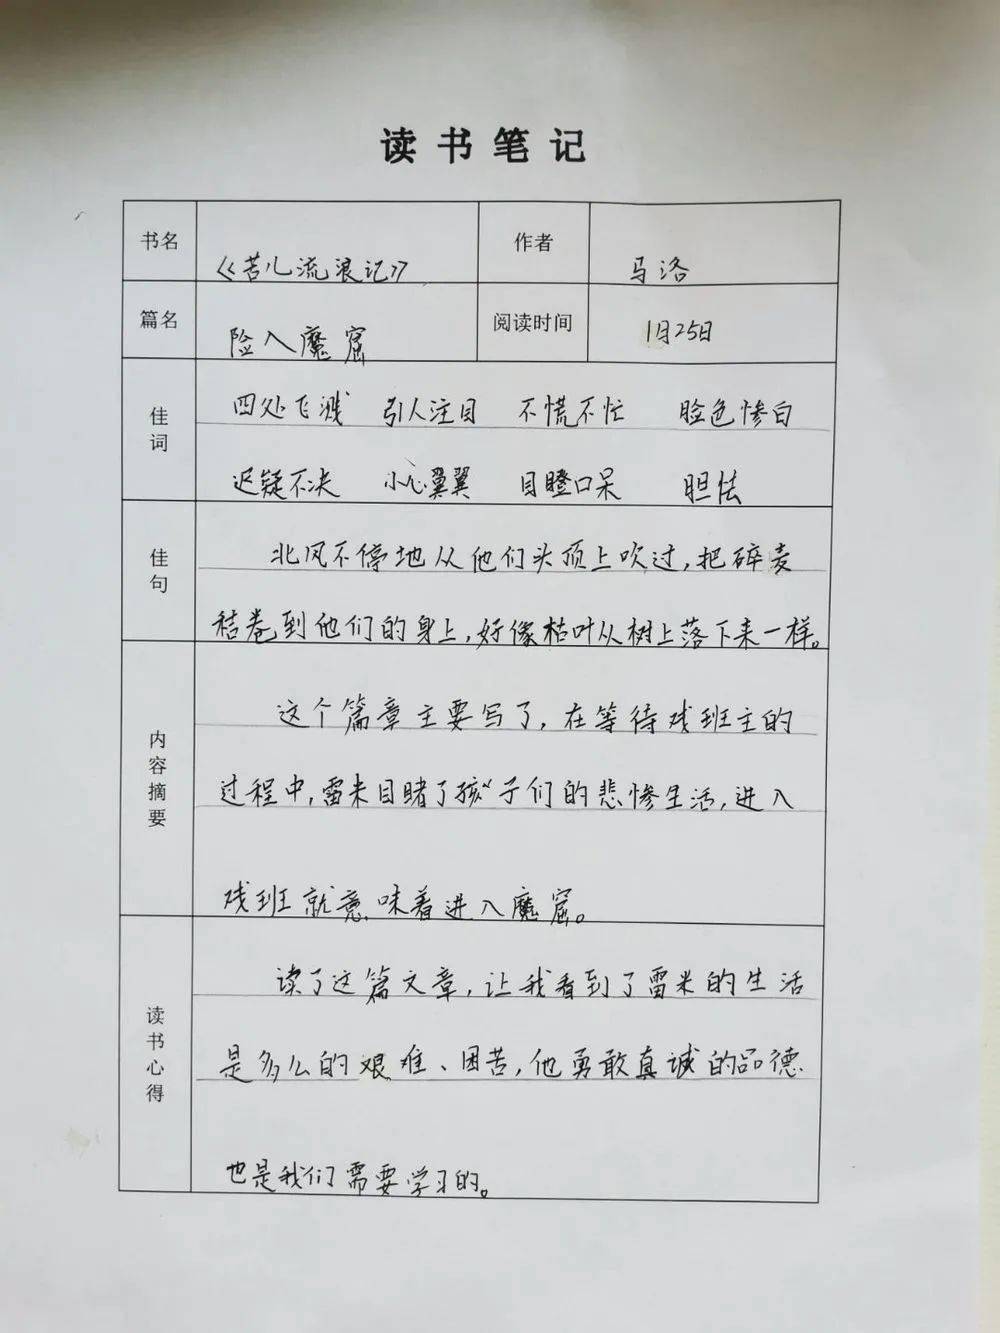 读书笔记
书名 《苦儿流浪记》 作者 马洛
篇名 险入魔窟 阅读时间 1月25日
佳词 四处飞溅 引人注目 不慌不忙 脸色惨白
迟疑不决 小心翼翼 目瞪口呆 胆怯
佳句 北风不停地从他们头顶上吹过,把碎麦
秸卷到他们的身上,好像枯叶从树上落下来一样。
内容摘要 这个篇章主要写了,在等待戏班主的
过程中,雷米目睹了孩子们的悲惨生活,进入
戏班就意味着进入魔窟。
读书心得 读了这篇文章,让我看到了雷米的生活
是多么的艰难、困苦,他勇敢真诚的品德
也是我们需要学习的。